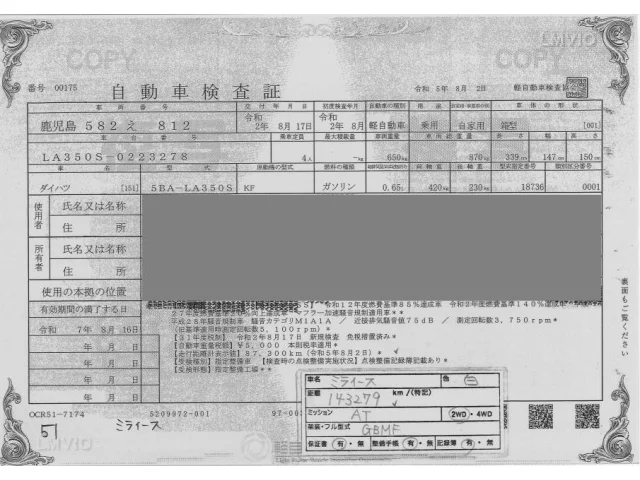 COPY
COPY
LMVIO
番号 00175
自動車検査証
令和 5年 8月 2日
軽自動車検査協会
車両番号
交付年月日
初度検査年月
自動車の種別
用途
自家用・事業用の別
車体の形状
鹿児島 582 え 812
令和 2年 8月 17日
令和 2年 8月
軽自動車
乗用
自家用
箱型
[001]
車台番号
乗車定員
最大積載量
車両重量
車両総重量
長さ
幅
高さ
LA350S-0223278
4人
-kg
650kg
870kg
339cm
147cm
150cm
車名
型式
原動機の型式
燃料の種類
前軸重
後軸重
型式指定番号
類別区分番号
ダイハツ
[151]
5BA-LA350S
KF
ガソリン
0.65L
420kg
230kg
18736
0001
使用者
氏名又は名称
住所
所有者
氏名又は名称
住所
使用の本拠の位置
有効期間の満了する日
令和 7年 8月 16日
年 月 日
年 月 日
年 月 日
年 月 日
令和12年度燃費基準85%達成車
マフラー加速騒音規制適用車**
平成28年騒音規制車 騒音カテゴリM1A1A / 近接排気騒音値75dB / 測定回転数3,750rpm*
5,100rpm)*
【31年度税制】令和2年8月17日 新規検査 免税措置済み*
【自動車重量税額】¥5,000 本則税率適用*
【走行距離計表示値】87,300km(令和5年8月2日)*
【受検種別】指定整備車 【検査時の点検整備実施状況】点検整備記録簿記載あり*
【受検形態】指定整備工場**
裏面もご覧ください
OCR51-7174
5209972-001
車名
ミライース
色
白
距離
143279
km/(特記)
ミッション
AT
2WD・4WD
架装・フル型式
GBMF
保証書 有・無 整備手帳 有・無 記録簿 有・無
51
ミライース
LMVIO